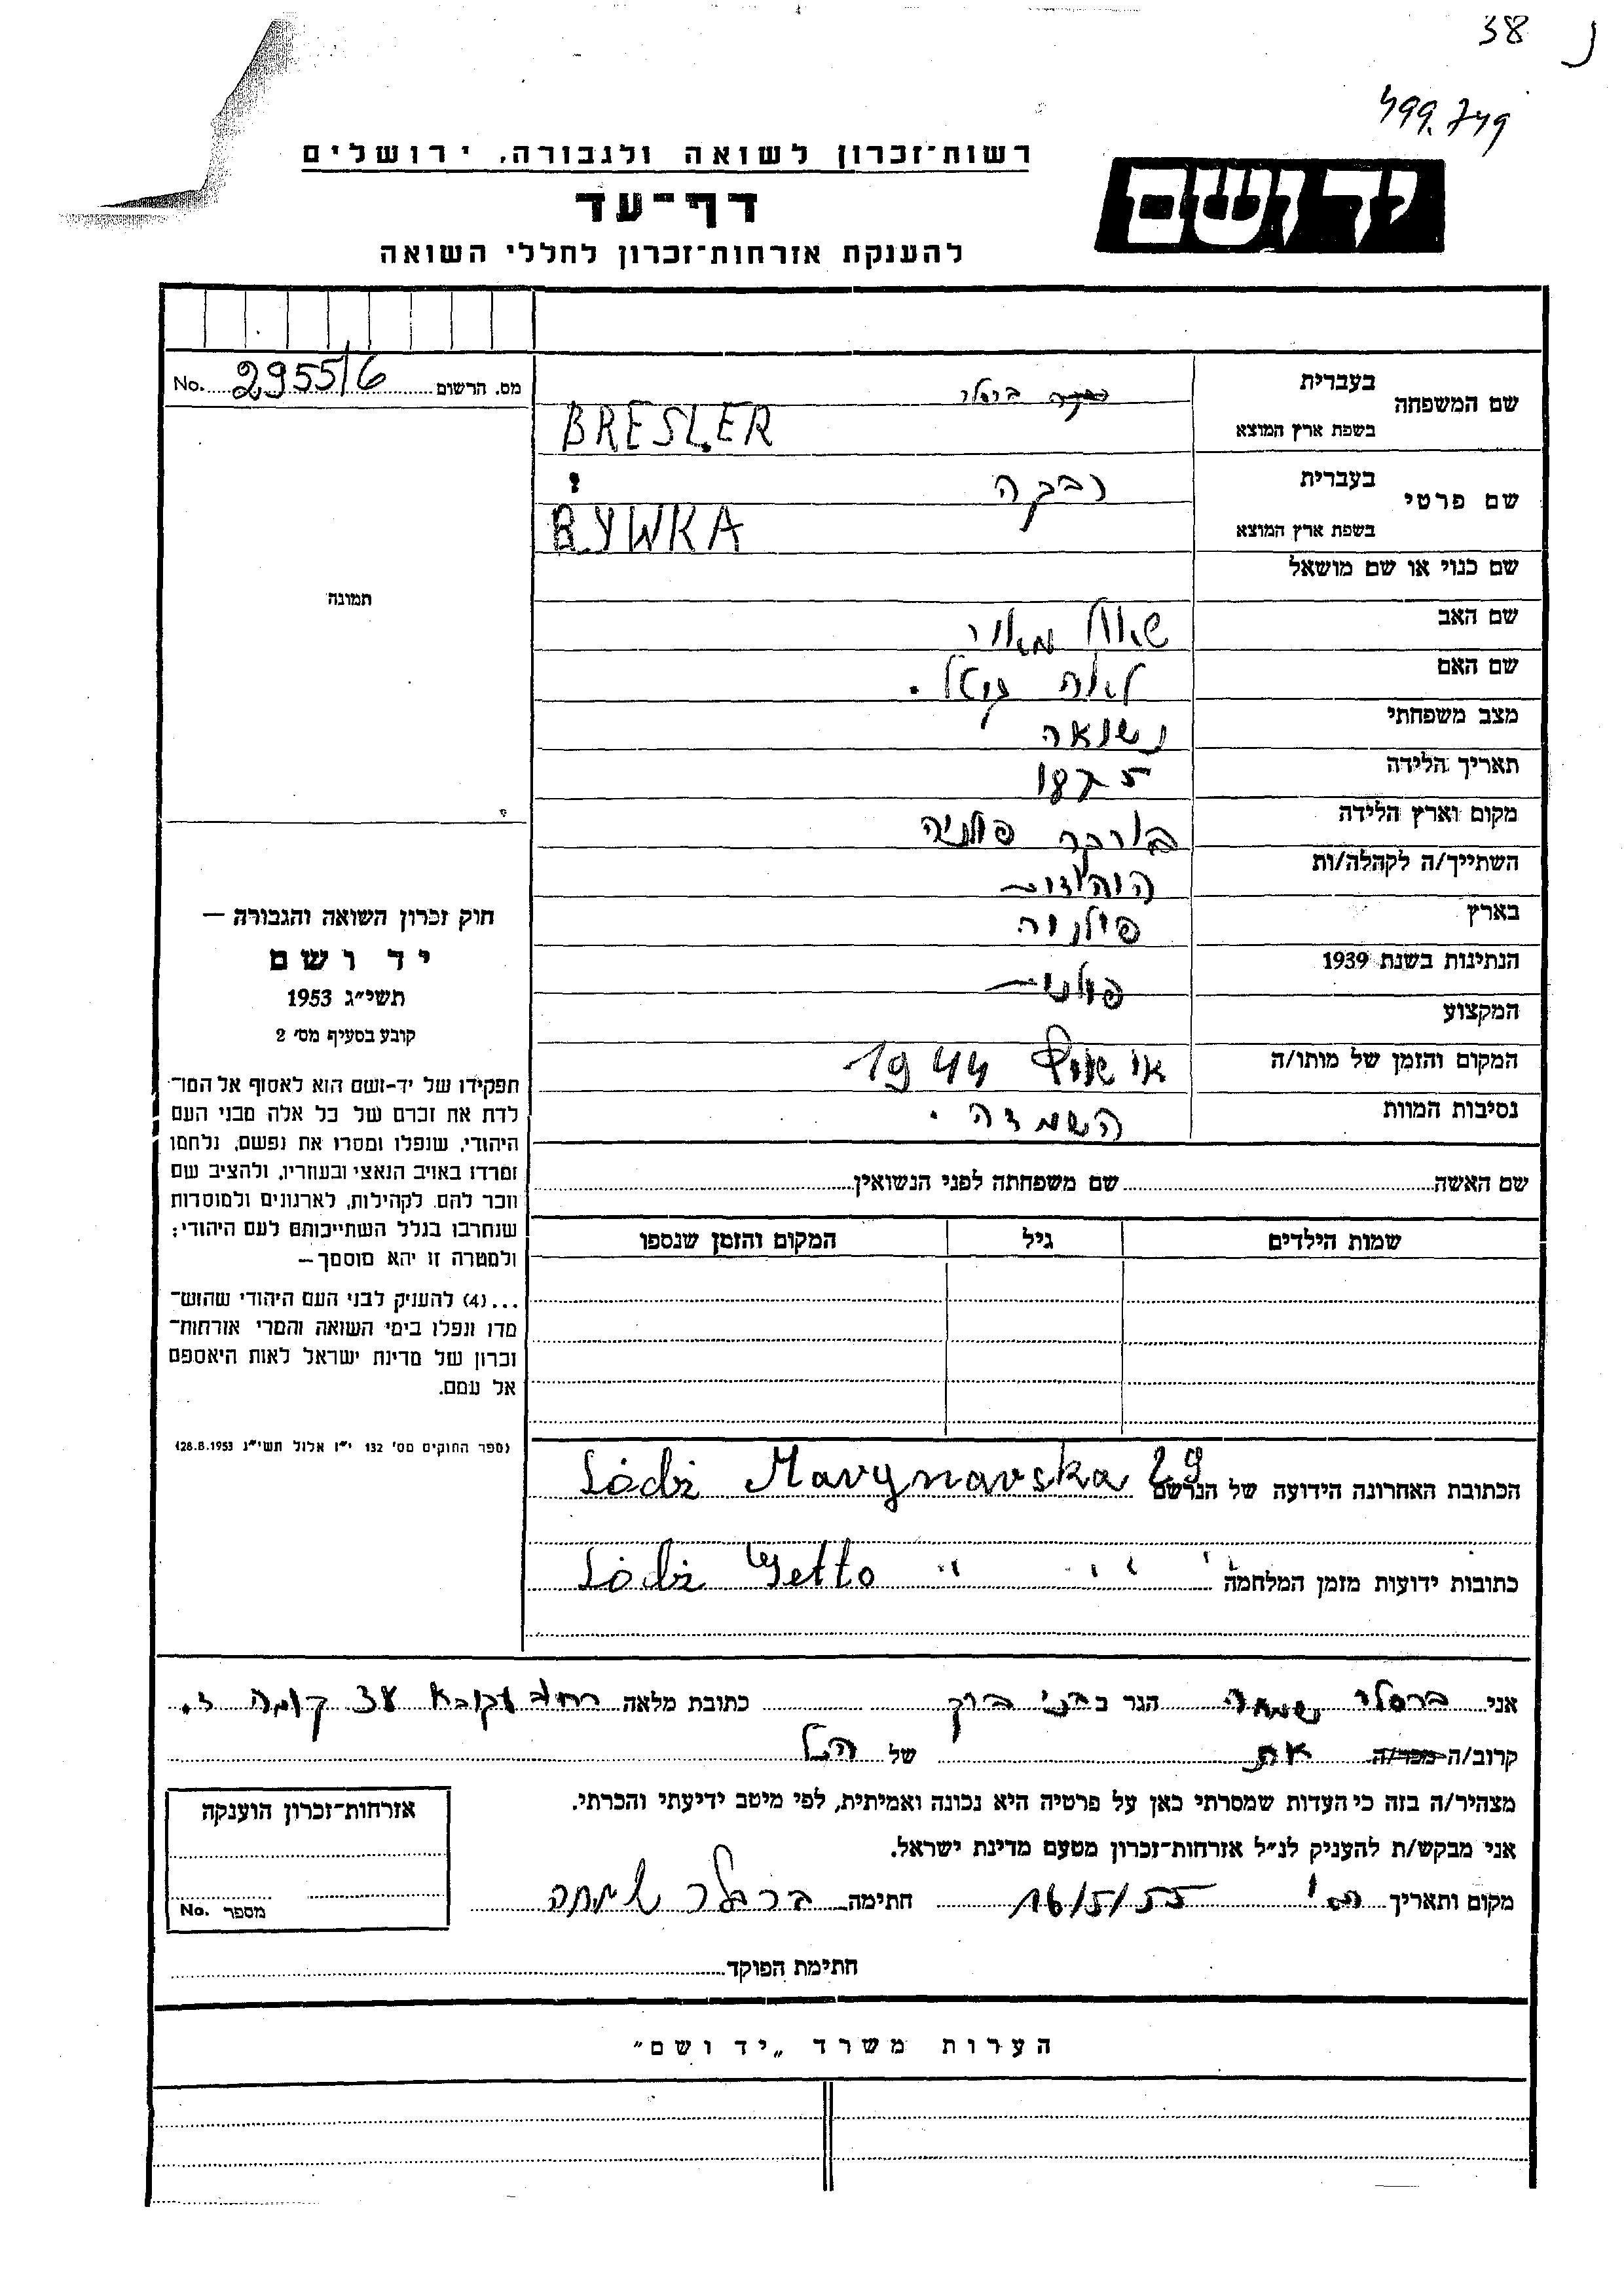 38 נ
499.749
רשות־זכרון לשואה ולגבורה, ירושלים
יד ושם
דף־עד
להענקת אזרחות־זכרון לחללי השואה
No. 295516 מס. הרשום
שם המשפחה בעברית ברסלר
בשפת ארץ המוצא BRESLER
שם פרטי בעברית רבקה
בשפת ארץ המוצא RYWKA
שם כנוי או שם מושאל
שם האב שאול מאיר
שם האם לאה גיטל.
מצב משפחתי נשואה
תאריך הלידה 1875
מקום וארץ הלידה פולניה
השתייך/ה לקהלה/ות היהודית
בארץ פולניה
הנתינות בשנת 1939 פולנית
המקצוע
המקום והזמן של מותו/ה אושויץ 1944
נסיבות המוות השמדה.
תמונה
חוק זכרון השואה והגבורה —
יד ושם
תשי״ג 1953
קובע בסעיף מס׳ 2
תפקידו של יד-ושם הוא לאסוף אל המו־
לדת את זכרם של כל אלה מבני העם
היהודי, שנפלו ומסרו את נפשם, נלחמו
ומרדו באויב הנאצי ובעוזריו, ולהציב שם
וזכר להם, לקהילות, לארגונים ולמוסדות
שנחרבו בגלל השתייכותם לעם היהודי;
ולמטרה זו יהא מוסמך—
...(4) להעניק לבני העם היהודי שהוש־
מדו ונפלו בימי השואה והמרי אזרחות־
זכרון של מדינת ישראל לאות היאספם
אל עמם.
(ספר החוקים מס׳ 132 י״ז אלול תשי״ג 28.8.1953)
שם האשה שם משפחתה לפני הנשואין
שמות הילדים גיל המקום והזמן שנספו
הכתובת האחרונה הידועה של הנרשם Łódź Marynarska 29
כתובות ידועות מזמן המלחמה Łódź Getto " "
אני ברסלר שמחה הגר ב בני ברק כתובת מלאה קומה ז.
קרוב/ה מכר/ה של הנ״ל
מצהיר/ה בזה כי העדות שמסרתי כאן על פרטיה היא נכונה ואמיתית, לפי מיטב ידיעתי והכרתי.
אני מבקש/ת להעניק לנ״ל אזרחות־זכרון מטעם מדינת ישראל.
מקום ותאריך 16/5/55 חתימה ברסלר שמחה
אזרחות־זכרון הוענקה
No. מספר
חתימת הפוקד
הערות משרד „יד ושם״